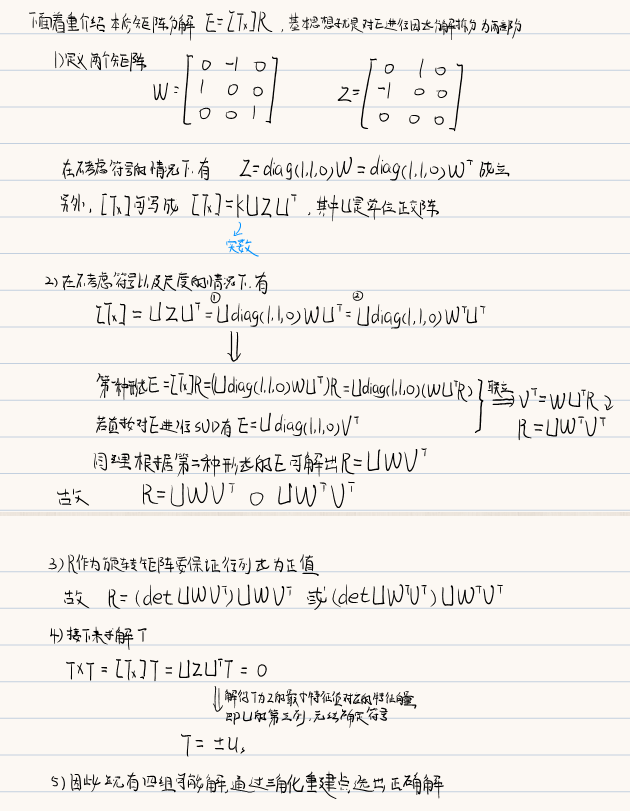 下面着重介绍本质矩阵分解 E=[Tx]R，基本思想就是对E进行因式分解拆分为两部分
1)定义两个矩阵
W=[0 -1 0; 1 0 0; 0 0 1] Z=[0 1 0; -1 0 0; 0 0 0]
在不考虑符号的情况下.有 Z=diag(1,1,0)W=diag(1,1,0)Wᵀ成立
另外，[Tx]可写成 [Tx]=kUZUᵀ，其中U是单位正交阵
实数
2)在不考虑符号以及尺度的情况下.有
[Tx]=UZUᵀ=①Udiag(1,1,0)WUᵀ=②Udiag(1,1,0)WᵀUᵀ
⇓
第一种形式E=[Tx]R=(Udiag(1,1,0)WUᵀ)R=Udiag(1,1,0)(WUᵀR)
若直接对E进行SVD有 E=Udiag(1,1,0)Vᵀ
联立 ⇒ Vᵀ=WUᵀR
R=UWᵀVᵀ
同理根据第二种形式的E可解出R=UWVᵀ
故 R=UWVᵀ O UWᵀVᵀ
3)R作为旋转矩阵要保证行列式为正值
故 R=(detUWVᵀ)UWVᵀ 或(detUWᵀVᵀ)UWᵀVᵀ
4)接下来求解T
T×T=[Tx]T=UZUᵀT=0
⇓ 解得T为Z的最小特征值对应的特征向量
即U的第三列,无法确定符号
T=±U₃
5)因此上既有四组可能解,通过三角化重建点,选出正确解